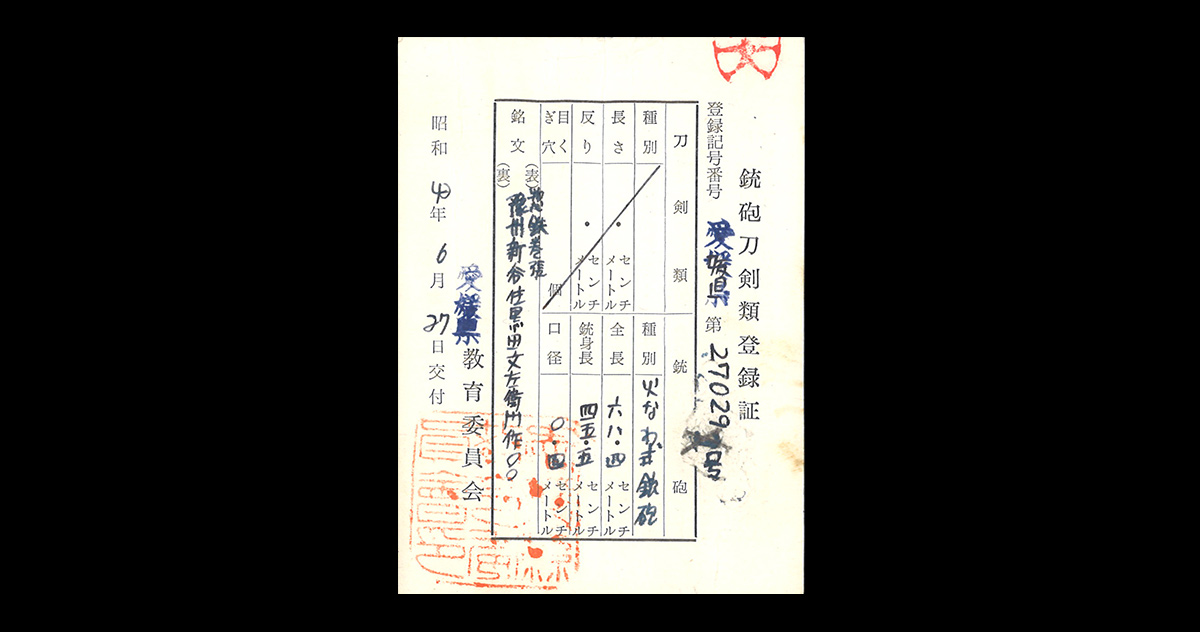 銃砲刀剣類登録証
登録記号番号 愛媛県 第27029号
刀剣類 銃砲
種別 種別 火なわ式銃砲
長さ ・ センチメートル 全長 六八・四 センチメートル
反り ・ センチメートル 銃身長 四五・五 センチメートル
目くぎ穴 個 口径 〇・四 センチメートル
銘文 (表) 惣鉄巻張
(裏) 豫州新谷住黒田文左衛門作〇〇
愛媛県教育委員会
昭和40年6月27日交付